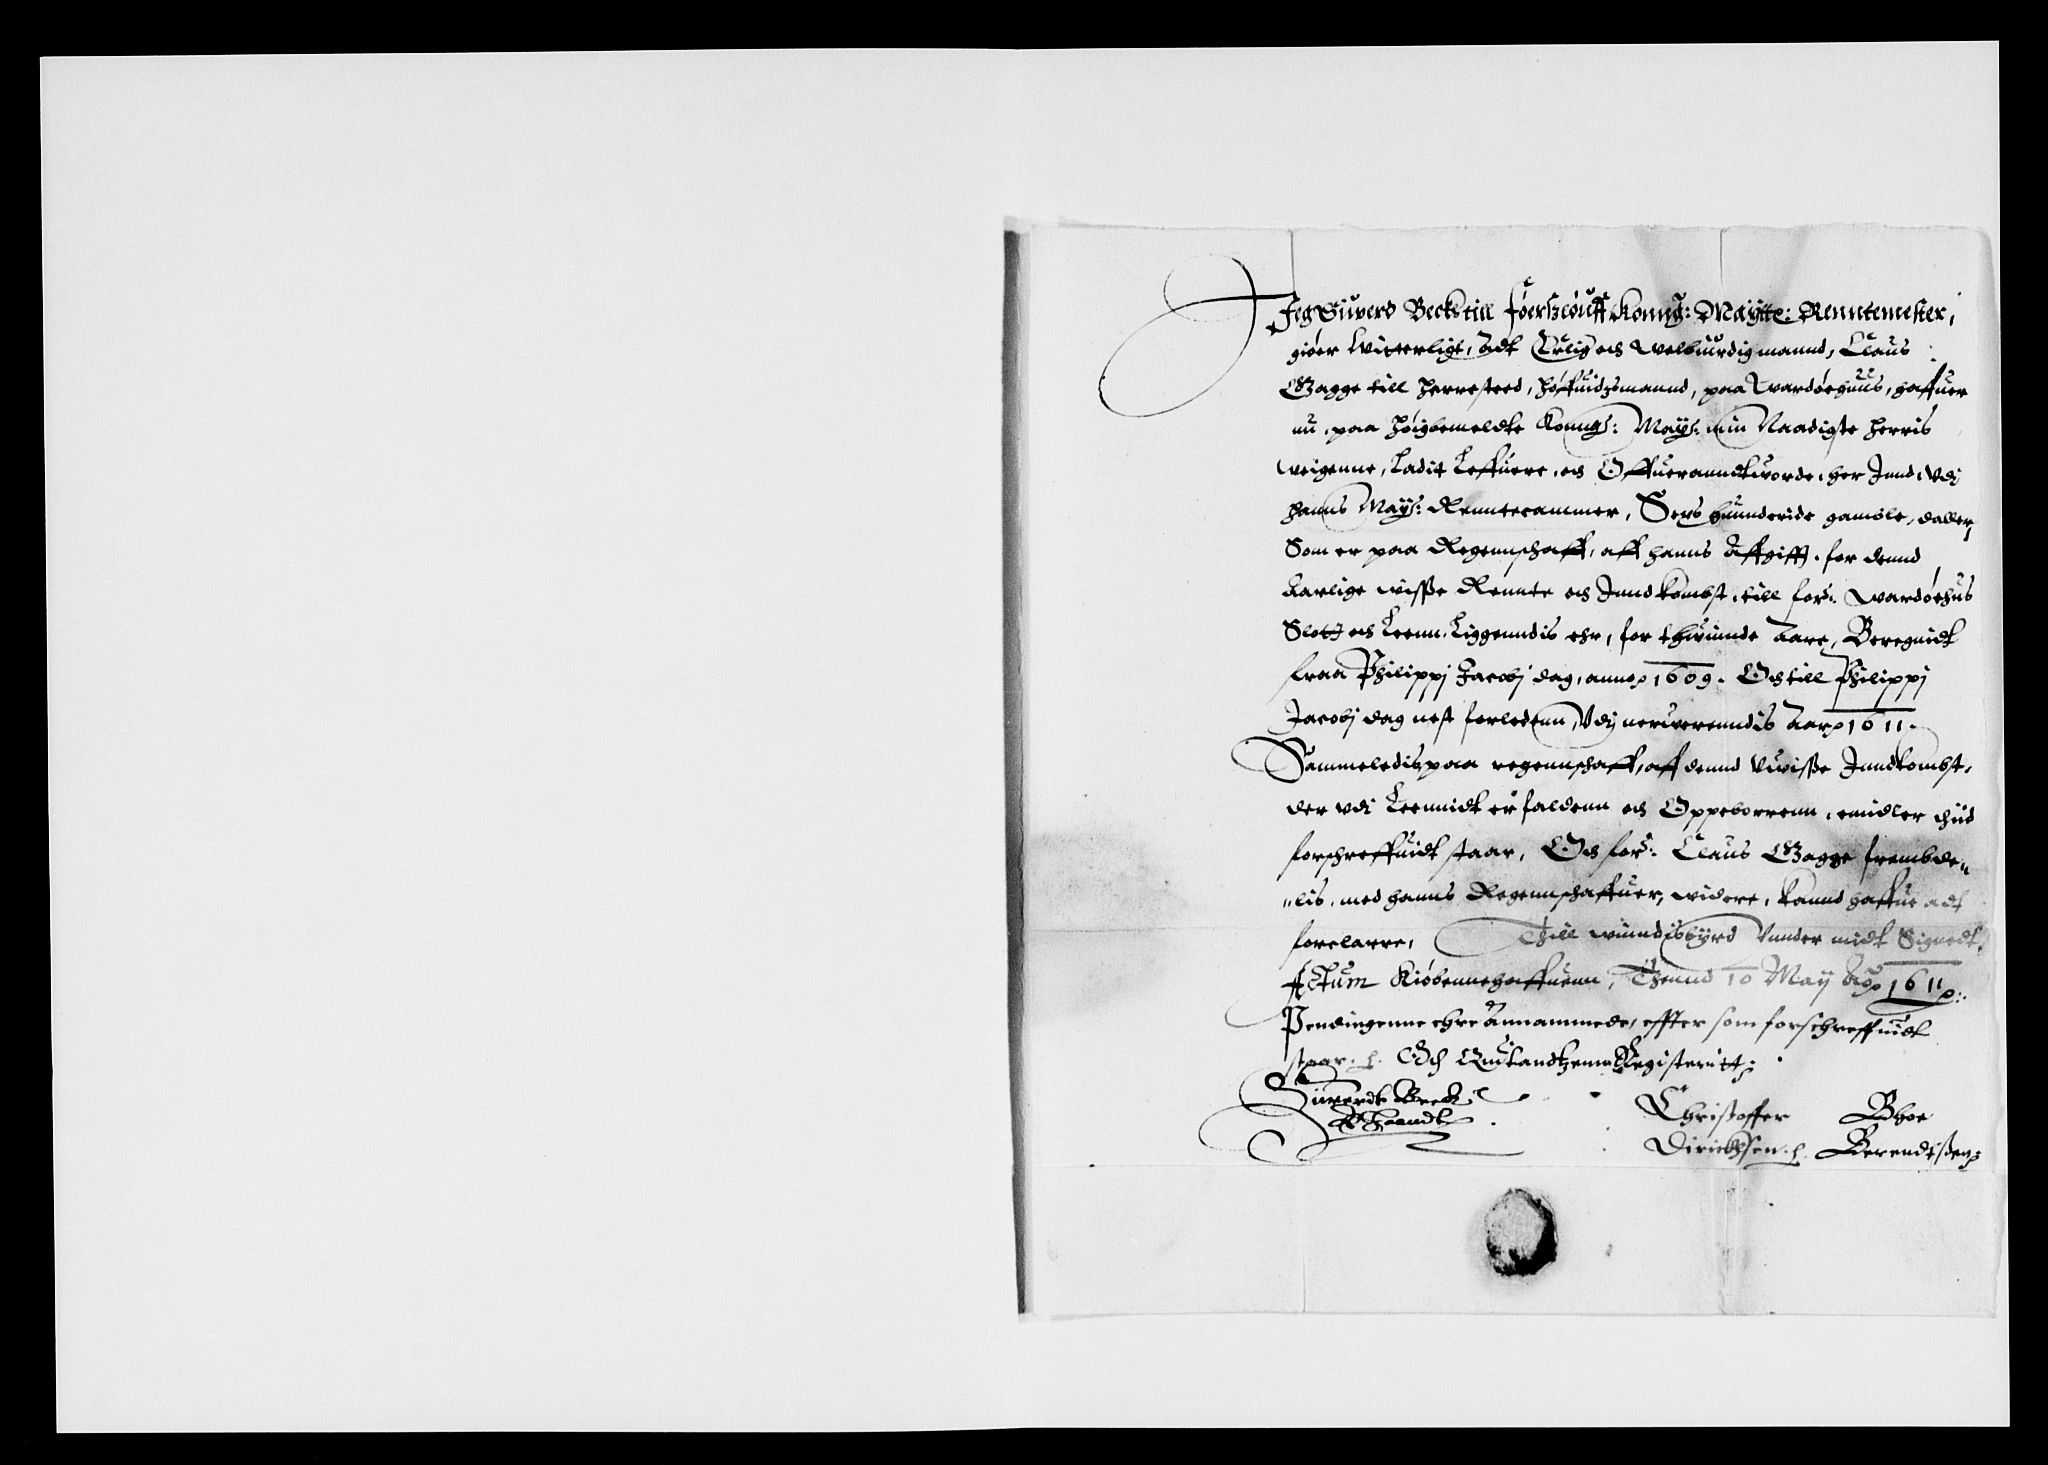 Jeg Siuerd Beck till Føerszløuff Konng: Maÿtts: Renntemester,
giøer witterligt, Adt Erlig och welbiurdig mannd, Claus
Gagge till Herresteed, Høffuidtzmannd, paa Wardøehuus, haffuer
nu, paa høigbemeldte Konngs: Mayts: min Naadigste Herris
weigenne, Ladit Leffuere, och Offuerandtuorde, her Innd, Vdi
hanns Mayts: Renntecammer, Sexs hunnderide gamble, daller,
Som er paa Regennschaff, aff hanns Affgifft, for dennd
Aarlige wisse Rennte och Inndkombst, till fors: Wardøehus
Slott och Leenn, Liggenndis ehr, for thuinnde Aare, Beregnidt
fraa Philippj Jacobj dag, anno 1609. Och till Philippj
Jacobj dag nest forledenn, Vdj neruerenndis Aar 1611.
Sammeledis paa regennschaff, aff dennd Vuisse Inndkombst,
der vdi Leennidt er faldenn och Oppeborrenn, emidler thiid
forschreffuidt staar, Och fors: Claus Gagge frembde„
„lis, med hanns Regennschaffuer, widere, kannd haffue adt
forclarre, Thill winndisbyrd Vnnder midt Signedt,
Actum Kiøbennehaffuenn, Thennd 10 May Ao 1611
Pendingenne ehre Annammede, effter som forschreffuidt
staar. Och Quitandtzenn Registeritt
Siuerdt Beck
Ehaandt
Christoffer Bhoe
Dirichsen Berendtsen